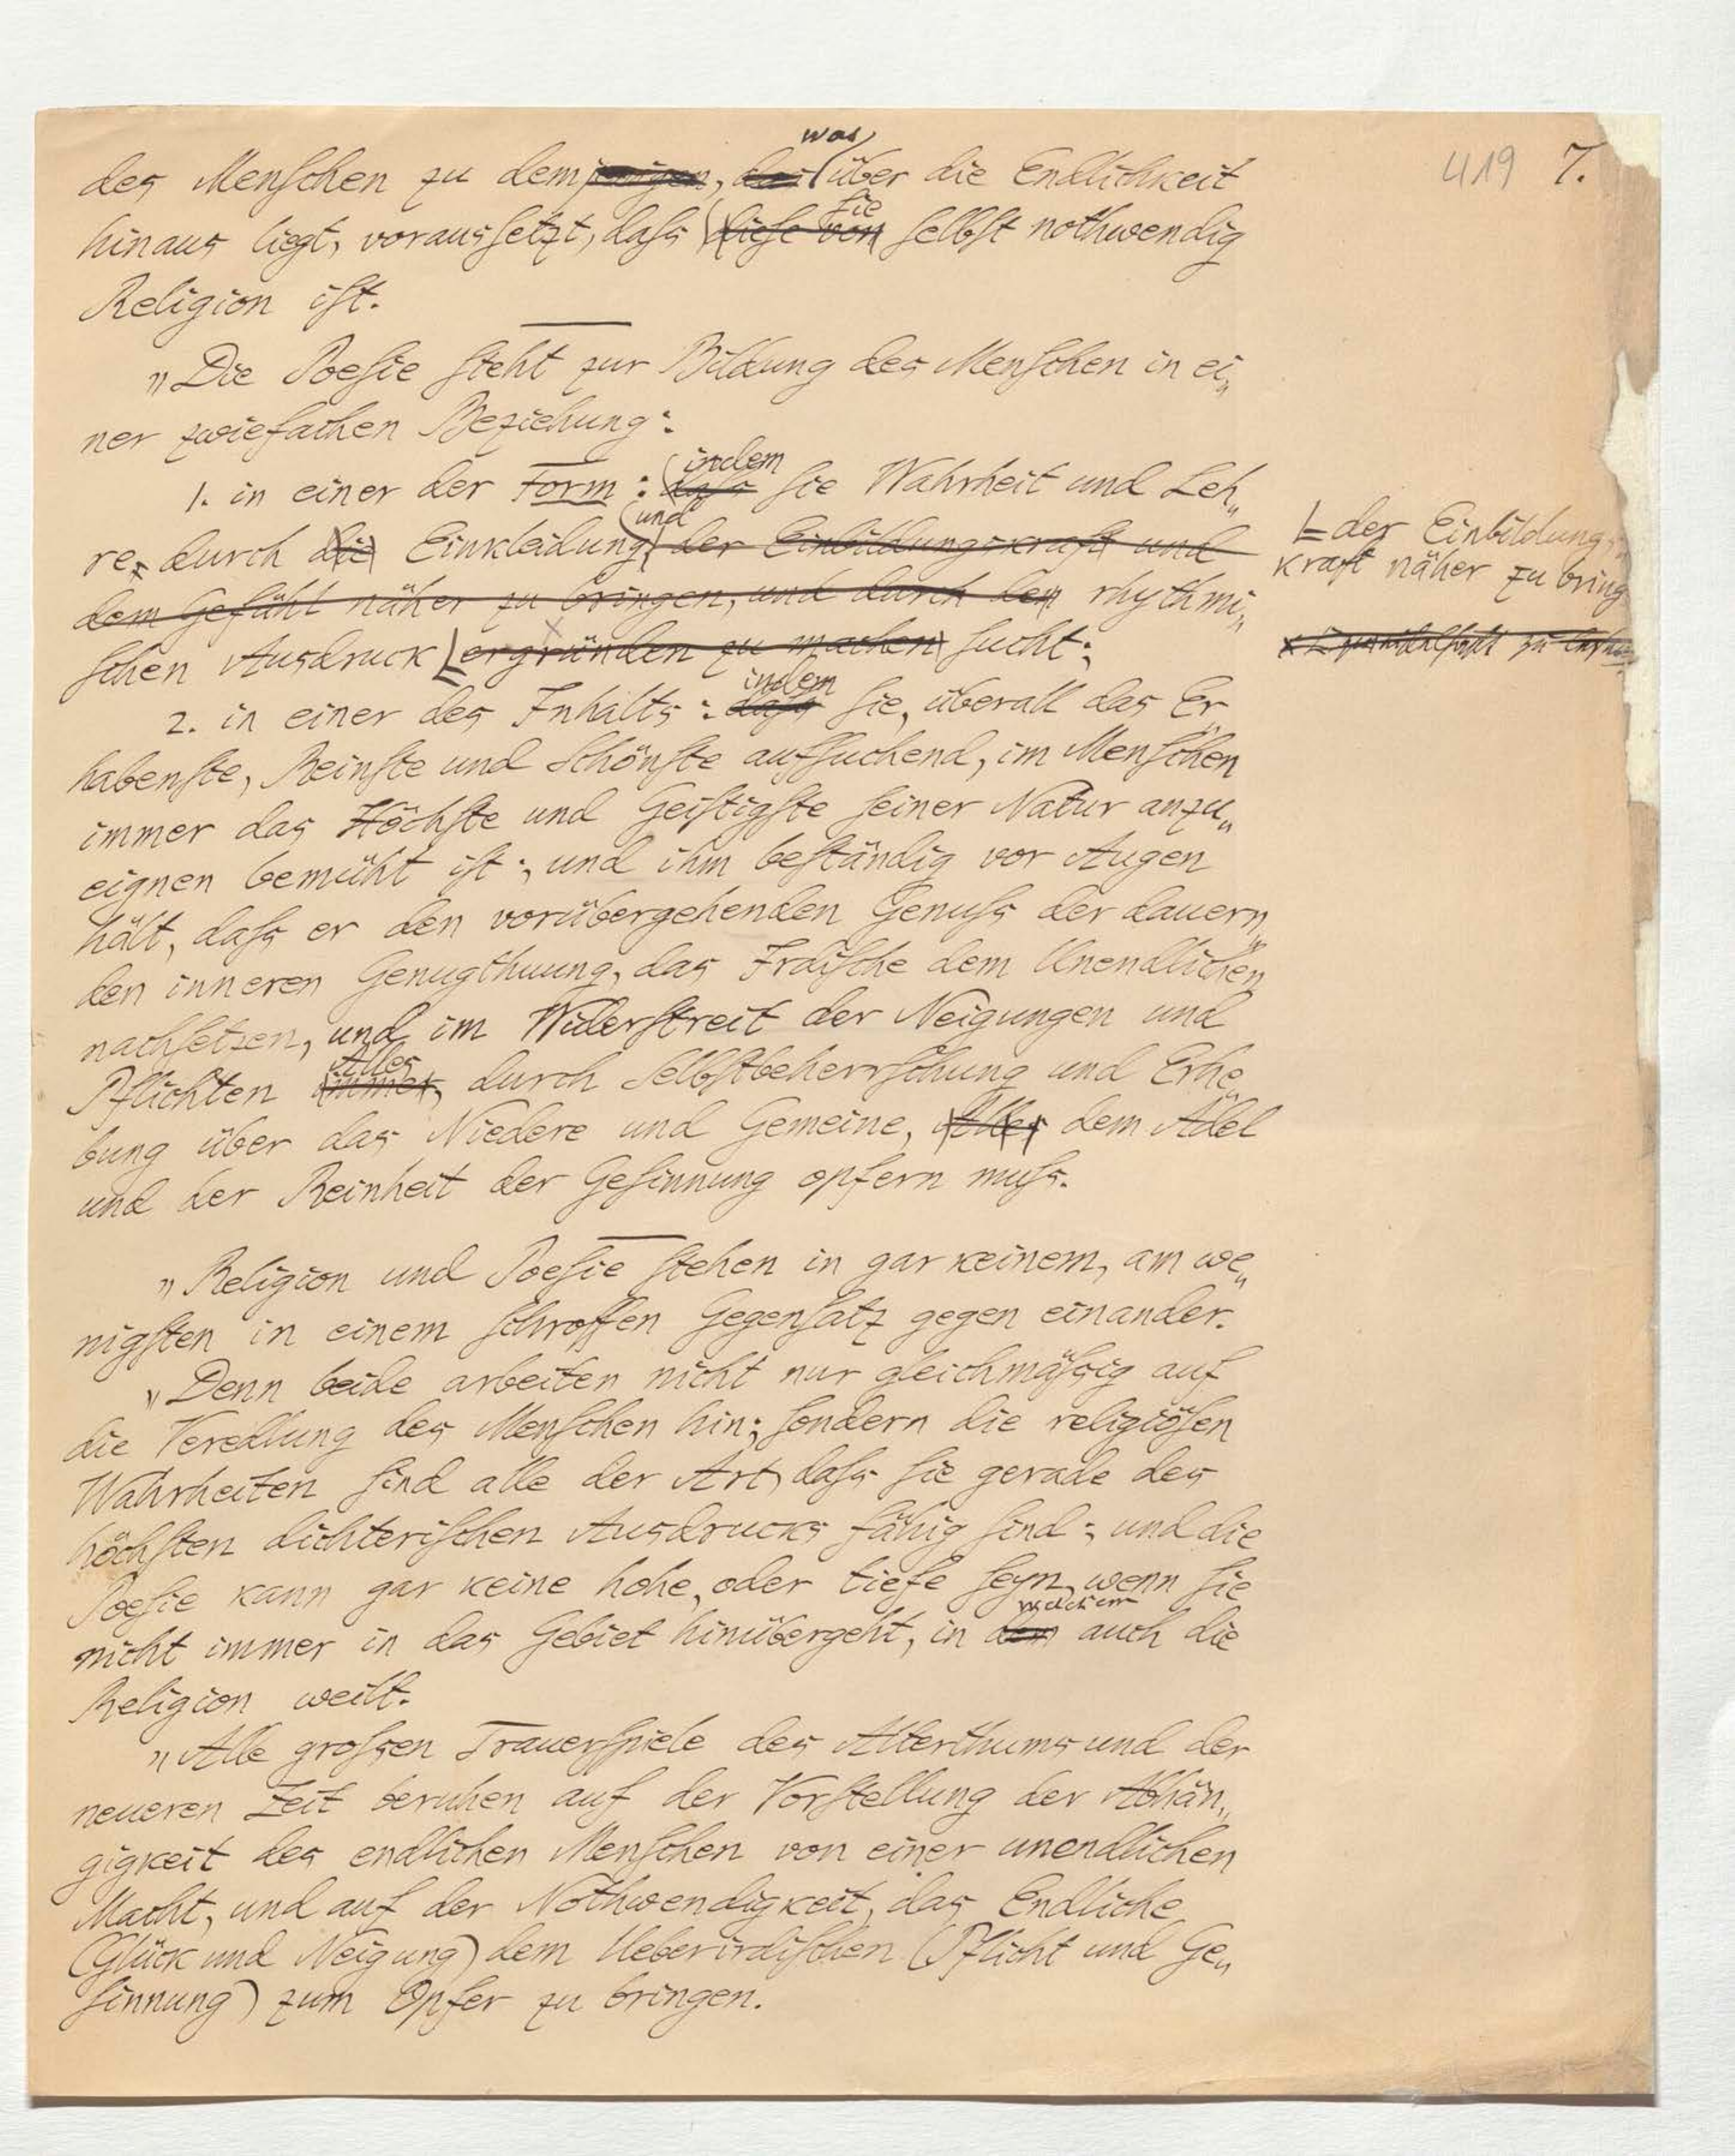 419 7.
des Menschen zu demjenigen, das was über die Endlichkeit
hinaus liegt, voraussetzt, dass diese von sie selbst nothwendig
Religion ist.
„Die Poesie steht zur Bildung des Menschen in ei„
ner zwiefachen Beziehung:
1. in einer der Form: dass indem sie Wahrheit und Leh„
re, durch die Einkleidung und der Einbildungskraft und
dem Gefühl näher zu bringen, und durch den rhythmi„
schen Ausdruck ergründen zu machen sucht;
der Einbildungs„
kraft näher zu bring
2. in einer des Inhalts: dass indem sie, überall das Er„
habenste, Reinste und Schönste aufsuchend, im Menschen
immer das Höchste und Geistigste seiner Natur anzu„
eignen bemüht ist; und ihm beständig vor Augen
hält, dass er den vorübergehenden Genuss der dauern„
den inneren Genugthuung, das Irdische dem Unendlichen
nachsetzen, und im Widerstreit der Neigungen und
Pflichten immer Alles, durch Selbstbeherrschung und Erhe„
bung über das Niedere und Gemeine, Alles dem Adel
und der Reinheit der Gesinnung opfern muss.
„Religion und Poesie stehen in gar keinem, am we„
nigsten in einem schroffen Gegensatz gegen einander.
„Denn beide arbeiten nicht nur gleichmässig auf
die Veredlung des Menschen hin; sondern die religiösen
Wahrheiten sind alle der Art, dass sie gerade des
höchsten dichterischen Ausdrucks fähig sind; und die
Poesie kann gar keine hohe, oder tiefe seyn, wenn sie
nicht immer in das Gebiet hinübergeht, in dem welchem auch die
Religion weilt.
„Alle grossen Trauerspiele des Alterthums und der
neueren Zeit beruhen auf der Vorstellung der Abhän„
gigkeit des endlichen Menschen von einer unendlichen
Macht, und auf der Nothwendigkeit, das Endliche
(Glück und Neigung) dem Ueberirdischen (Pflicht und Ge„
sinnung) zum Opfer zu bringen.